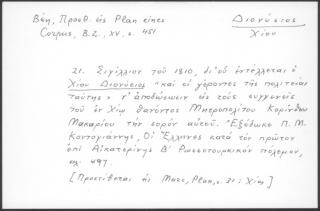 Βέη, Προσθ. εἰς Plan eines
Corpus, B.Z., XV, σ. 451
Διονύσιος
Χίου
21. Σιγίλλιον τοῦ 1810, δι' οὗ ἐντέλλεται ὁ
Χίου Διονύσιος "καὶ οἱ γέροντες τῆς πολιτείας
ταύτης" ν' ἀποδώσωσιν εἰς τοὺς συγγενεῖς
τοῦ ἐν Χίῳ θανόντος Μητροπολίτου Κορίνθου
Μακαρίου τὴν σορὸν αὐτοῦ. Ἐξέδωκε Π. Μ.
Κοντογιάννης, Οἱ Ἕλληνες κατὰ τὸν πρῶτον
ἐπὶ Αἰκατερίνης Β' Ρωσσοτουρκικὸν πόλεμον,
σελ. 497.
[Προστίθεται εἰς Marc, Plan, σ. 31: Χίῳ]